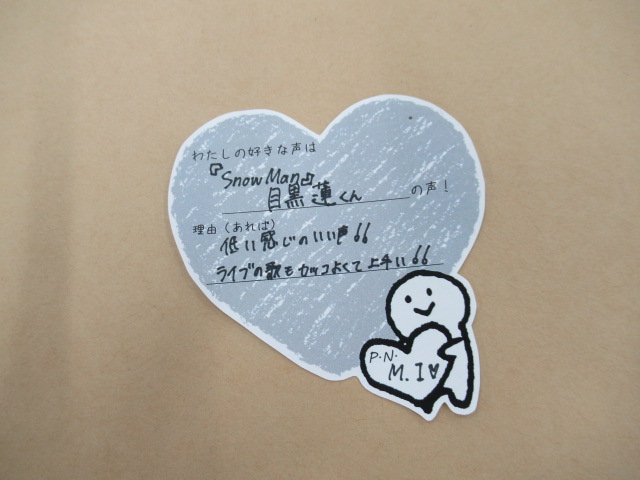 わたしの好きな声は
『Snow Man』
目黒蓮くん の声!
理由(あれば)
低い感じのいい声!!
ライブの歌もカッコよくて上手い!!
P.N.
M.I♥